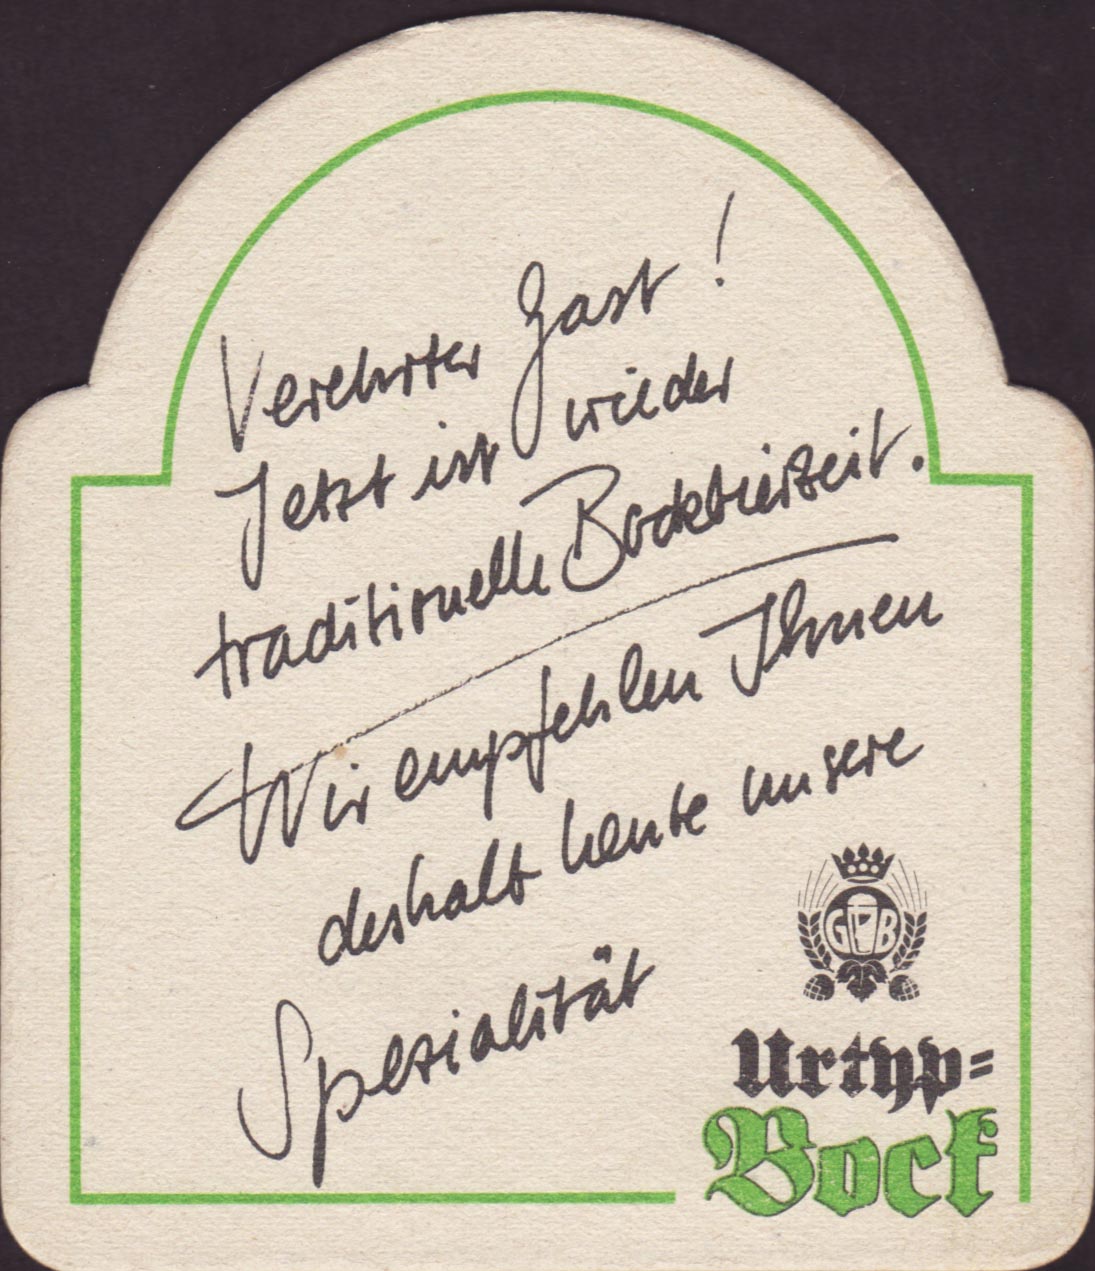 Verehrter Gast!
Jetzt ist wieder
traditionelle Bockbierzeit.
Wir empfehlen Ihnen
deshalb heute unsere
Spezialität
GPB
Urtyp=
Bock